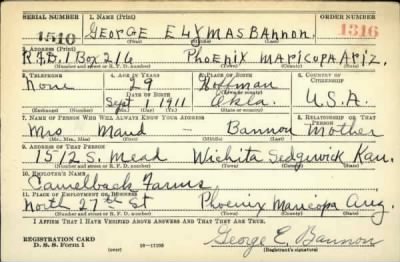 SERIAL NUMBER 1. NAME (Print) ORDER NUMBER
1510 GEORGE ELYMAS BANNON. 1316
(First) (Middle) (Last)
3. ADDRESS (Print)
R.F.D. 1 Box 216 Phoenix MARICOPA ARIZ.
(Number and street or R. F. D. number) (Town) (County) (State)
3. TELEPHONE 4. AGE IN YEARS 5. PLACE OF BIRTH 6. COUNTRY OF CITIZENSHIP
None 29 Hoffman
DATE OF BIRTH
Sept 1, 1911 Okla. U.S.A.
(Exchange) (Number) (Mo.) (Day) (Yr.) (State or country)
7. NAME OF PERSON WHO WILL ALWAYS KNOW YOUR ADDRESS 8. RELATIONSHIP OF THAT PERSON
Mrs Maud — Bannon Mother
(Mr., Mrs., Miss) (First) (Middle) (Last)
9. ADDRESS OF THAT PERSON
1512 S. Mead Wichita Sedgwick Kan.
(Number and street or R. F. D. number) (Town) (County) (State)
10. EMPLOYER'S NAME
Camelback Farms
11. PLACE OF EMPLOYMENT OR BUSINESS
North 27th St Phoenix Maricopa Ariz.
(Number and street or R. F. D. number) (Town) (County) (State)
I AFFIRM THAT I HAVE VERIFIED ABOVE ANSWERS AND THAT THEY ARE TRUE.
REGISTRATION CARD
D. S. S. Form 1 George E. Bannon
(Registrant's signature)